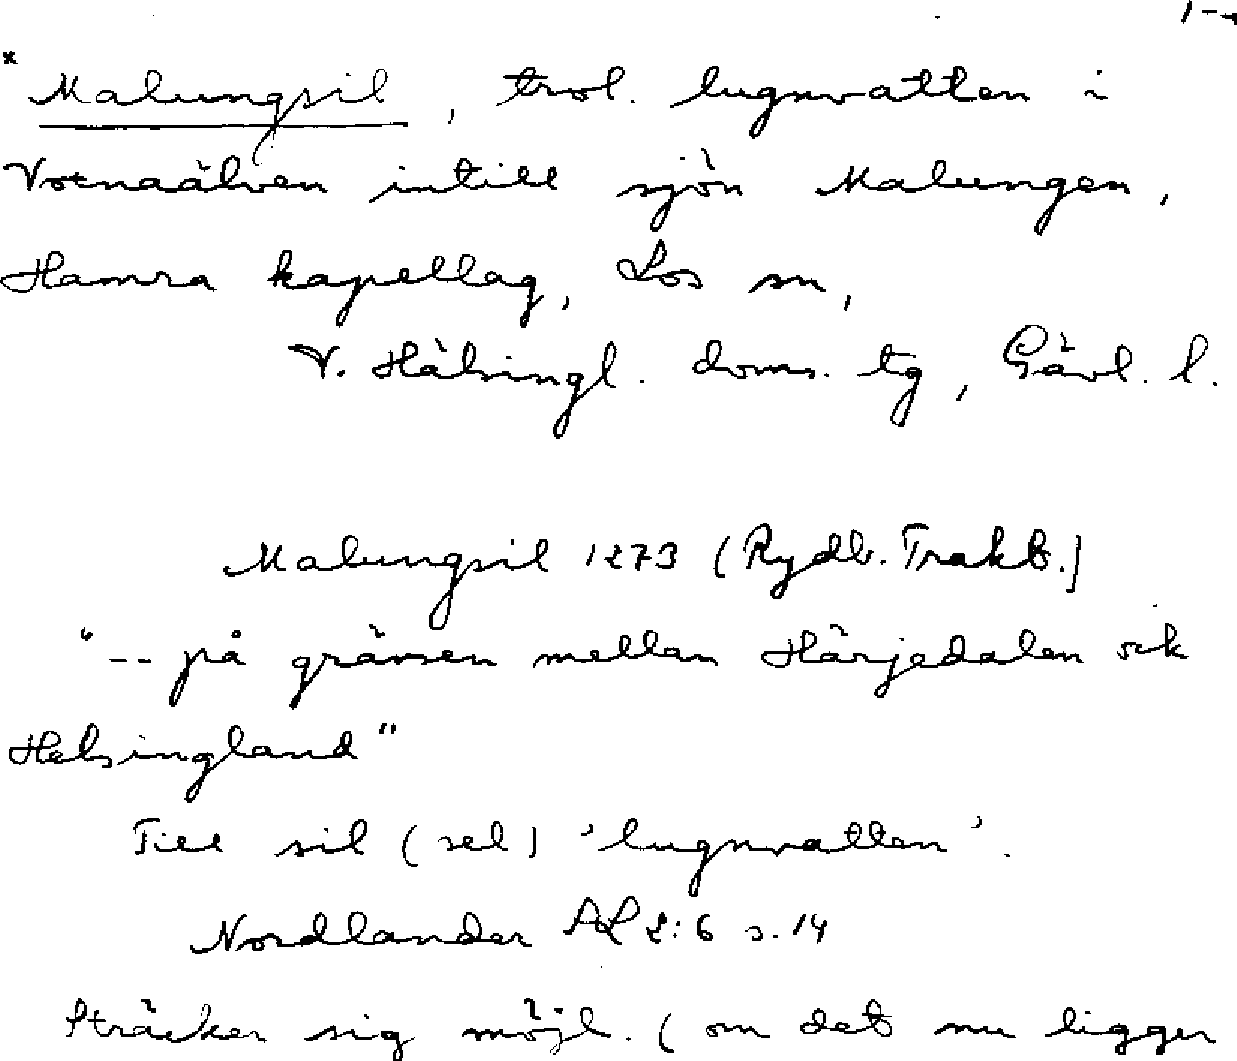 * Malungsil, trol. lugnvatten i
Votnaälven intill sjön Malungen,
Hamra kapellag, Los sn,
V. Hälsingl. doms. tg, Gävl. l.
Malungsil 1273 (Rydb. Trakt.)
"-- på gränsen mellan Härjedalen ock
Helsingland"
Till sil (sel) 'lugnvatten'.
Nordlander ALL:6 s. 14
Sträcker sig möjl. (om det nu ligger